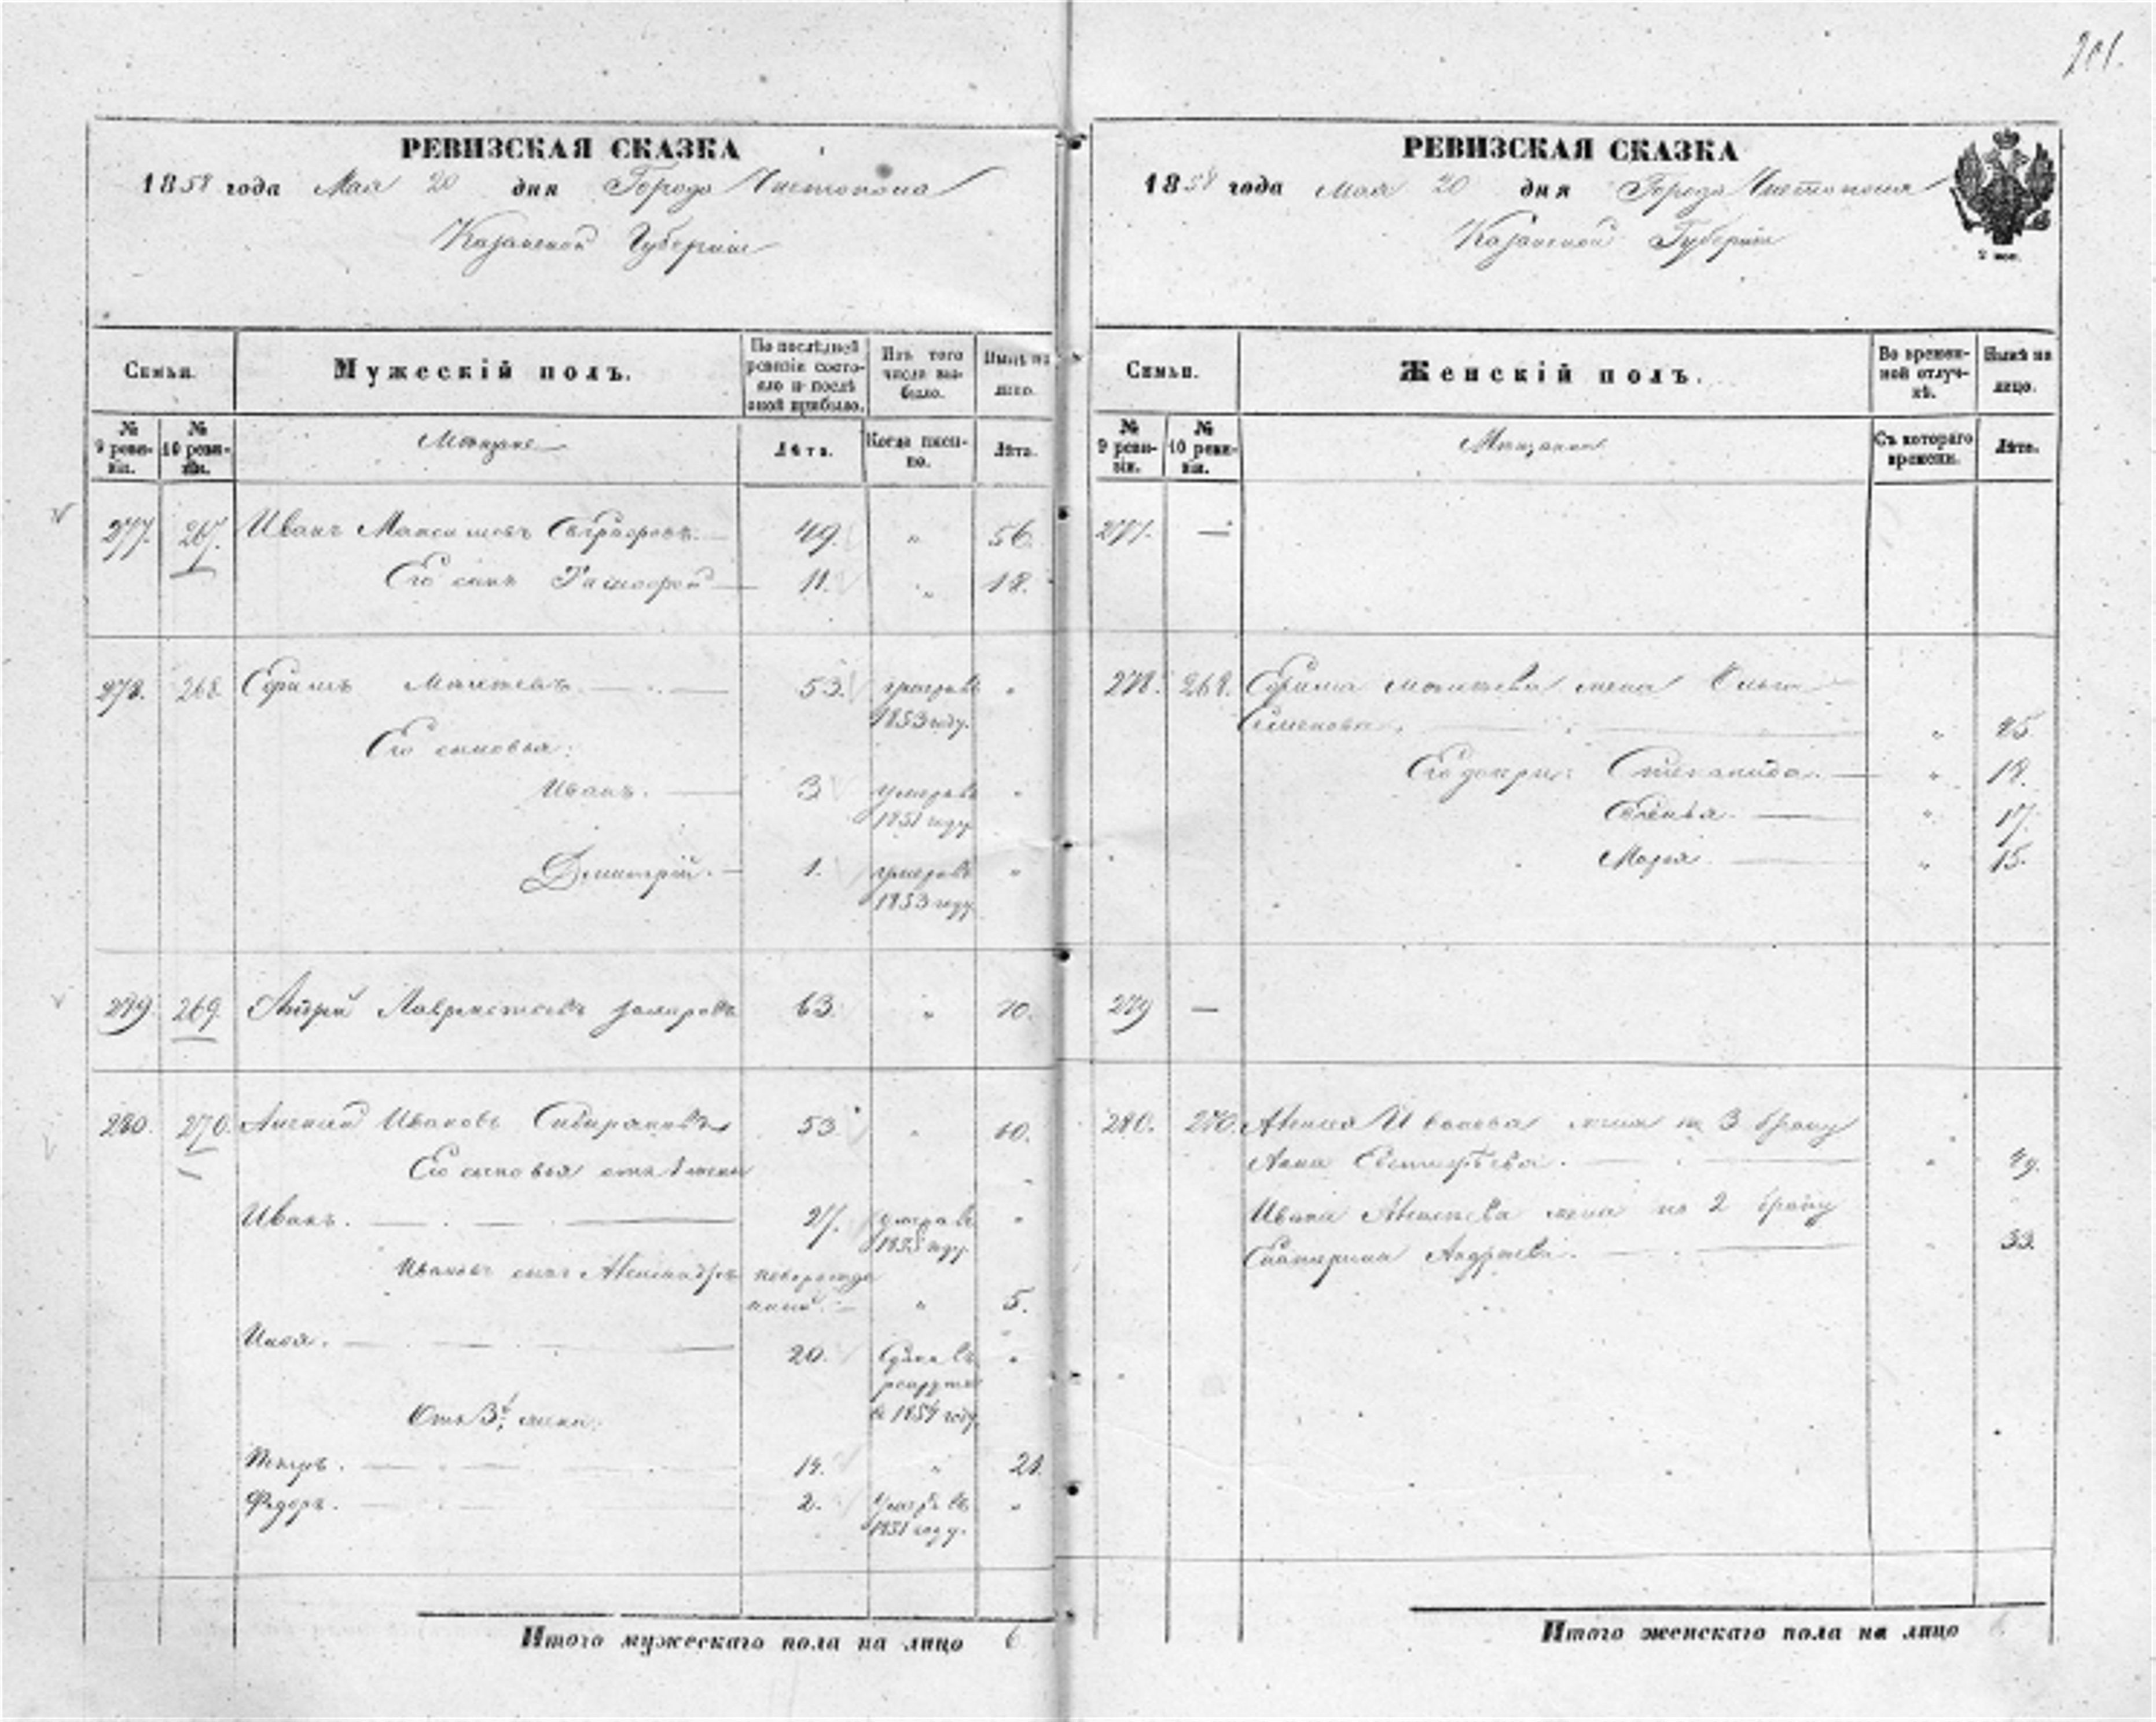 201.
РЕВИЗСКАЯ СКАЗКА
1858 года Мая 20 дня Города Чистополя
Казанской Губернии
Семьи.
Мужескій полъ.
По послѣдней ревизіи состояло и послѣ оной прибыло.
Изъ того числа выбыло.
Нынѣ на лицо.
№ 9 ревизіи.
№ 10 ревизіи.
Мѣщане
Лѣта.
Когда именно.
Лѣта.
277. 267. Иванъ Максимовъ 49. " 56.
Его сынъ 11. " 18.
278. 268 Ефимъ 53. умеръ въ "
1853 году.
Его сыновья:
Иванъ. 3 умеръ въ "
1851 году
Дмитрій. 1. умеръ въ "
1853 году
279. 269. Андрей Лаврентьевъ 63. " 70.
280. 270. Алексей Ивановъ Сибиряковъ 53. " 60.
Его сыновья отъ 1 жены
Иванъ. 27. умеръ въ "
1855 году
Ивановъ сынъ Александръ новорожде
нный. " 5.
Илья. 20. Сданъ въ "
рекруты
въ 1854 году
Отъ 3й жены:
Петръ. 14. " 21.
Федоръ. 2. Умеръ въ "
1851 году.
Итого мужескаго пола на лицо 6
РЕВИЗСКАЯ СКАЗКА
1858 года Мая 20 дня Города Чистополя
Казанской Губернии
Семьи.
Женскій полъ.
Во временной отлучкѣ.
Нынѣ на лицо.
№ 9 ревизіи.
№ 10 ревизіи.
Мѣщанки
Съ котораго времени.
Лѣта.
277. —
278. 268. Ефима жена Ольга
Семенова. " 45
Его дочери: Степанида. " 18.
" 17.
Марья. " 15.
279 —
280. 270. Алексея Иванова жена по 3 браку
Анна " 49.
Ивана Алексеева жена по 2 браку
Екатерина Андреева. " 33.
Итого женскаго пола на лицо